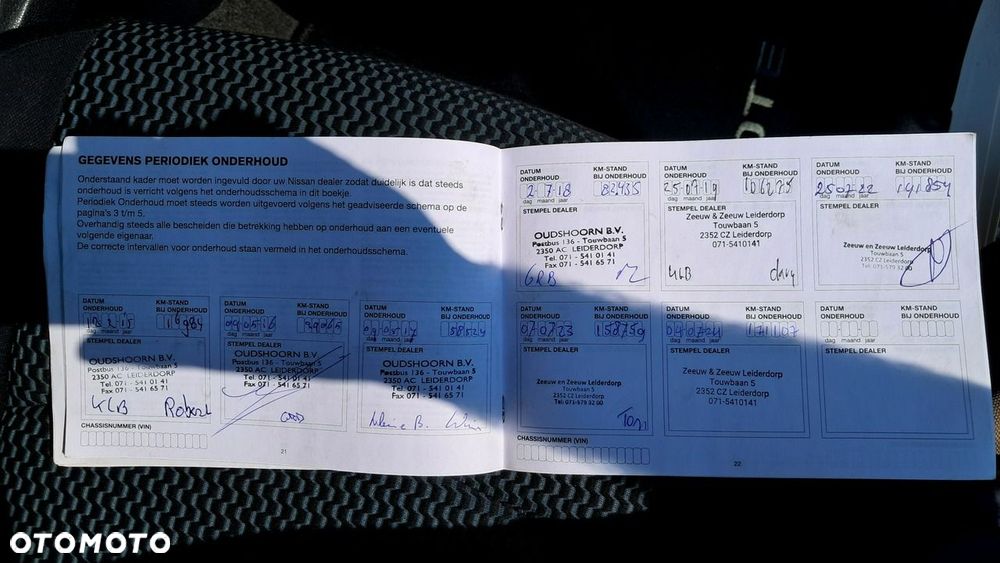 GEGEVENS PERIODIEK ONDERHOUD
Onderstaand kader moet worden ingevuld door uw Nissan dealer zodat duidelijk is dat steeds
onderhoud is verricht volgens het onderhoudsschema in dit boekje.
Periodiek Onderhoud moet steeds worden uitgevoerd volgens het geadviseerde schema op de
pagina's 3 t/m 5.
Overhandig steeds alle bescheiden die betrekking hebben op onderhoud aan een eventuele
volgende eigenaar.
De correcte intervallen voor onderhoud staan vermeld in het onderhoudsschema.
DATUM ONDERHOUD
KM-STAND BIJ ONDERHOUD
dag maand jaar
STEMPEL DEALER
OUDSHOORN B.V.
Postbus 136 - Touwbaan 5
2350 AC LEIDERDORP
Tel. 071 - 541 01 41
Fax 071 - 541 65 71
KLB Robert
DATUM ONDERHOUD
KM-STAND BIJ ONDERHOUD
09 05 16
39065
dag maand jaar
STEMPEL DEALER
OUDSHOORN B.V.
Postbus 136 - Touwbaan 5
2350 AC LEIDERDORP
Tel. 071 - 541 01 41
Fax 071 - 541 65 71
DATUM ONDERHOUD
KM-STAND BIJ ONDERHOUD
09 05 17
58524
dag maand jaar
STEMPEL DEALER
OUDSHOORN B.V.
Postbus 136 - Touwbaan 5
2350 AC LEIDERDORP
Tel. 071 - 541 01 41
Fax 071 - 541 65 71
CHASSISNUMMER (VIN)
21
DATUM ONDERHOUD
KM-STAND BIJ ONDERHOUD
2 7 18
82435
dag maand jaar
STEMPEL DEALER
OUDSHOORN B.V.
Postbus 136 - Touwbaan 5
2350 AC LEIDERDORP
Tel. 071 - 541 01 41
Fax 071 - 541 65 71
GRB
DATUM ONDERHOUD
KM-STAND BIJ ONDERHOUD
25 07 19
dag maand jaar
STEMPEL DEALER
Zeeuw & Zeeuw Leiderdorp
Touwbaan 5
2352 CZ Leiderdorp
071-5410141
KLB
DATUM ONDERHOUD
KM-STAND BIJ ONDERHOUD
25 07 22
141854
dag maand jaar
STEMPEL DEALER
Zeeuw en Zeeuw Leiderdorp
Touwbaan 5
2352 CZ Leiderdorp
Tel: 071-579 32 00
DATUM ONDERHOUD
KM-STAND BIJ ONDERHOUD
07 07 23
158759
dag maand jaar
STEMPEL DEALER
Zeeuw en Zeeuw Leiderdorp
Touwbaan 5
2352 CZ Leiderdorp
Tel: 071-579 32 00
DATUM ONDERHOUD
KM-STAND BIJ ONDERHOUD
09 07 24
171167
dag maand jaar
STEMPEL DEALER
Zeeuw & Zeeuw Leiderdorp
Touwbaan 5
2352 CZ Leiderdorp
071-5410141
DATUM ONDERHOUD
KM-STAND BIJ ONDERHOUD
dag maand jaar
STEMPEL DEALER
CHASSISNUMMER (VIN)
22
OTOMOTO